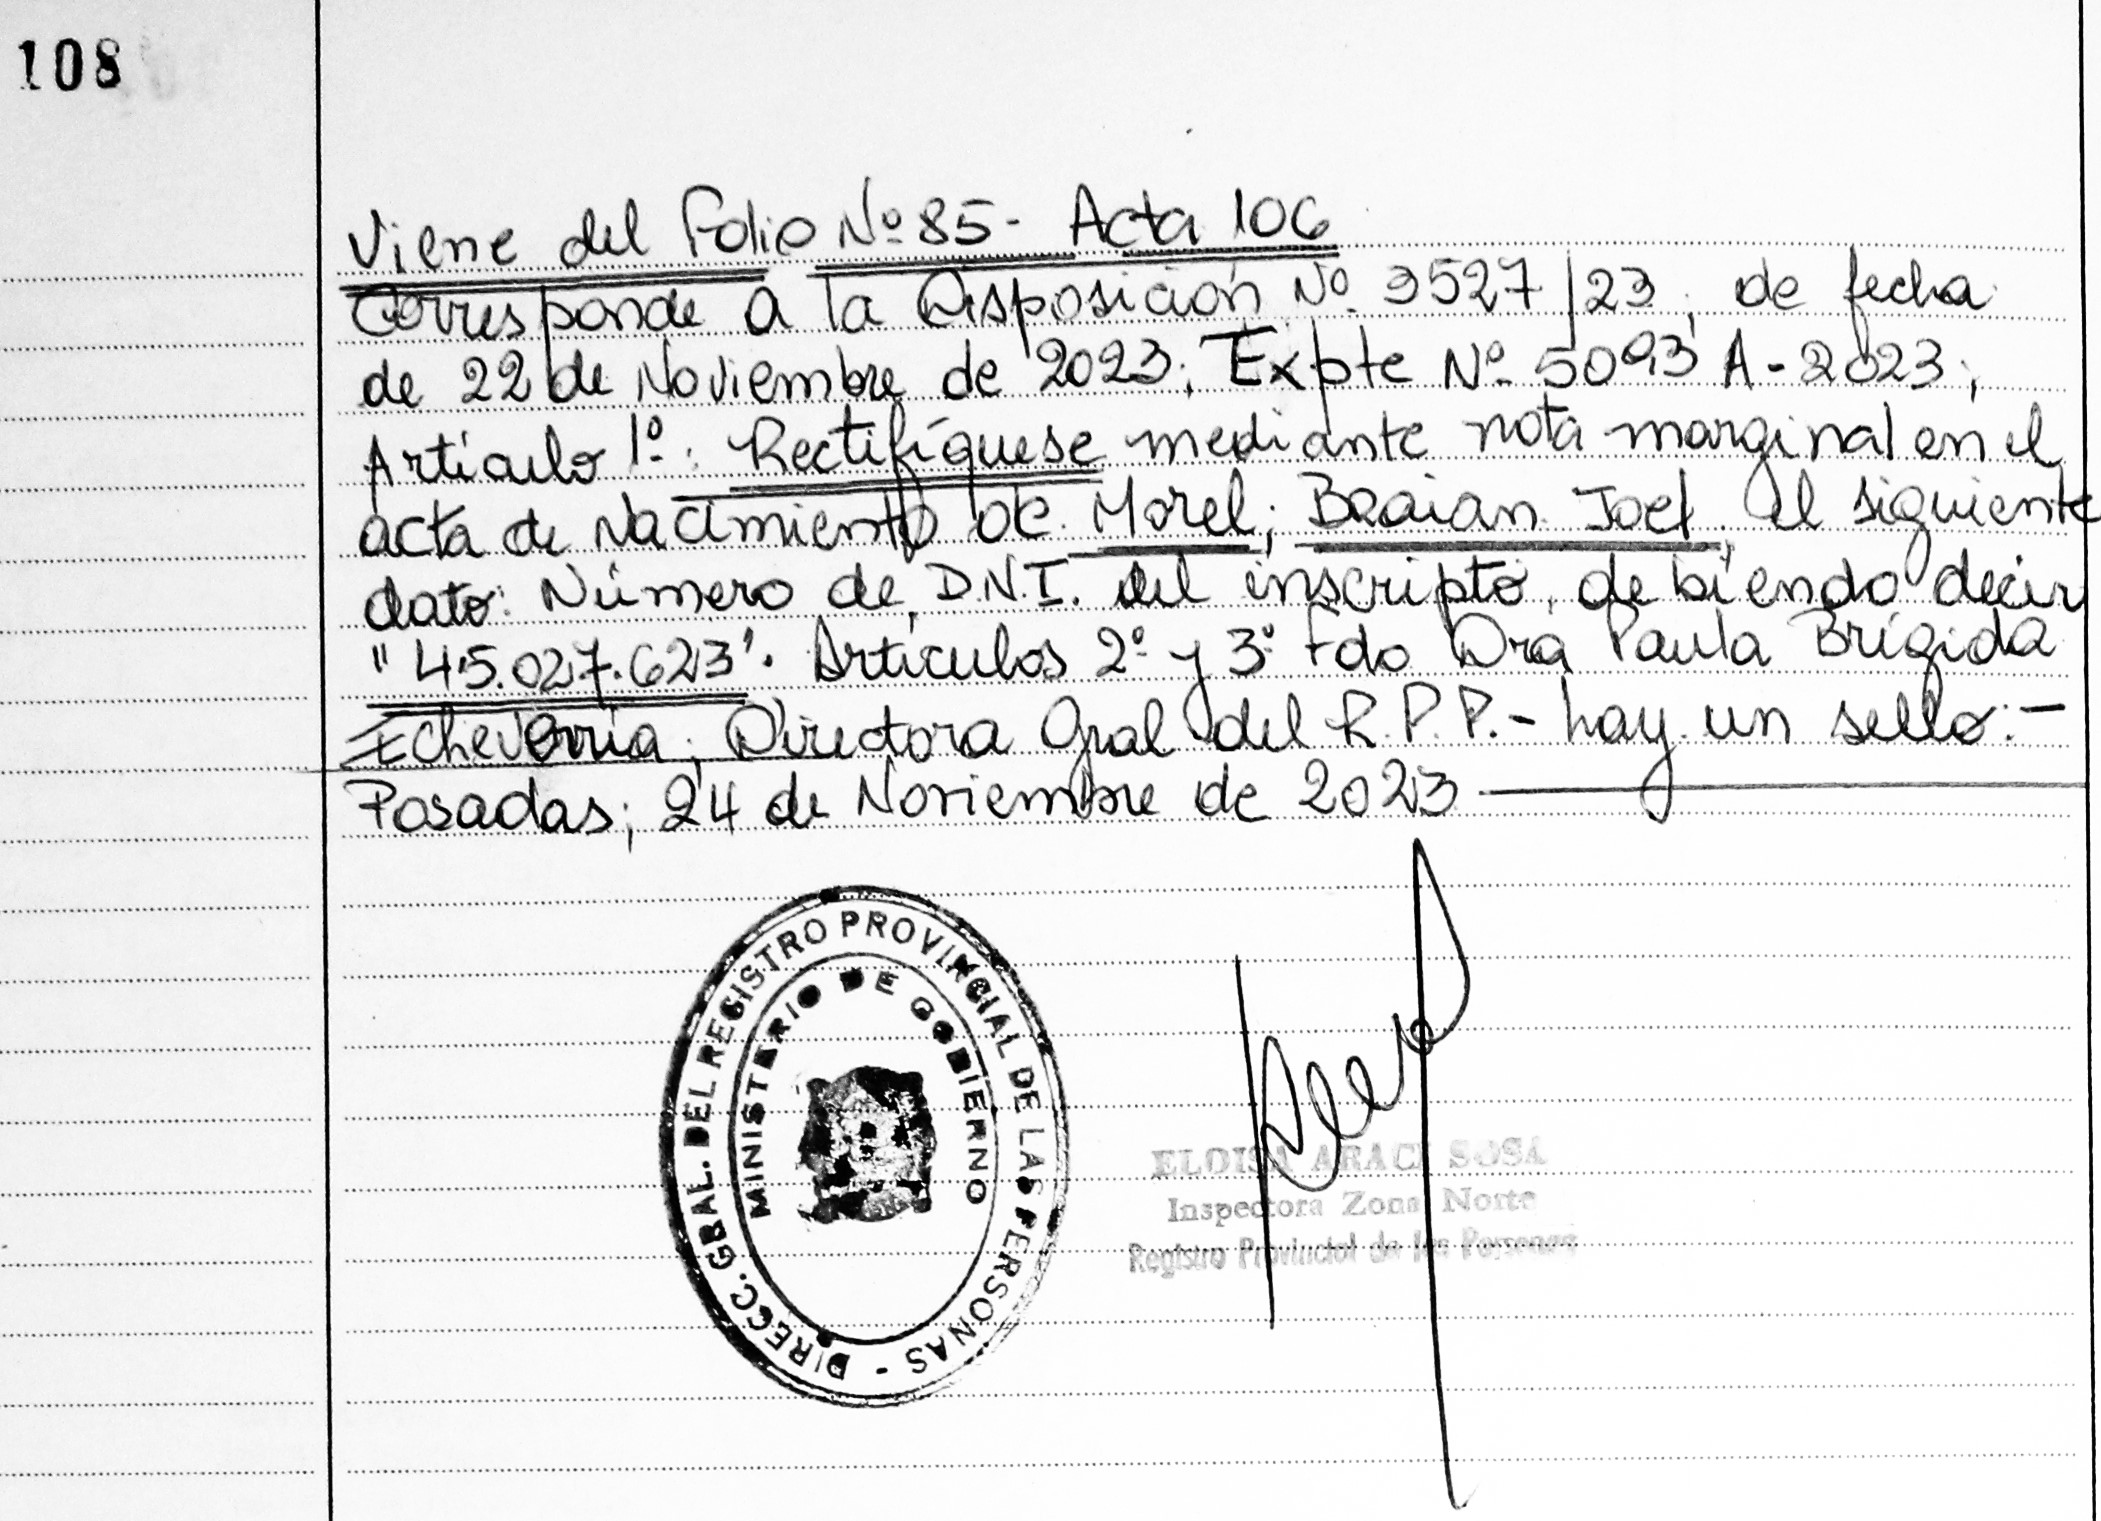 108
Viene del Folio Nº 85- Acta 106
Corresponde a la Disposición Nº 3527/23, de fecha
de 22 de Noviembre de 2023; Expte Nº 5093 A-2023;
Artículo 1º: Rectifíquese mediante nota marginal en el
acta de Nacimiento de Morel; Braian Joel, el siguiente
dato: Número de D.N.I. del inscripto, debiendo decir
"45.027.623". Artículos 2º y 3º Fdo Dra Paula Brígida
Echeverria; Directora Gral del R.P.P.- hay un sello:-
Posadas; 24 de Noviembre de 2023
DIRECC. GRAL. DEL REGISTRO PROVINCIAL DE LAS PERSONAS -
MINISTERIO DE GOBIERNO
ELOISA ARACI SOSA
Inspectora Zona Norte
Registro Provincial de las Personas